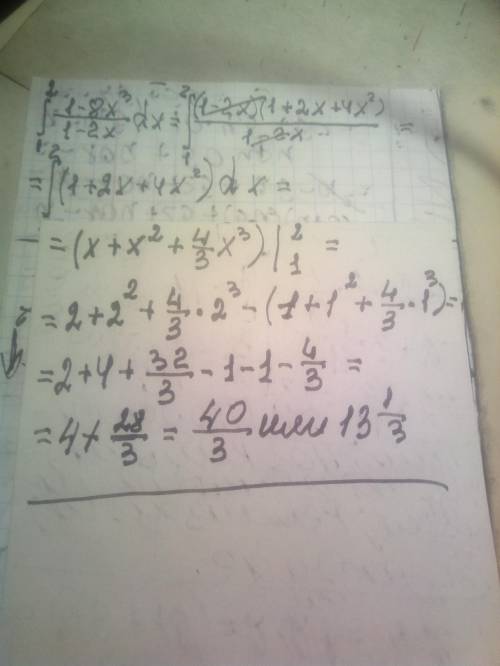 ∫₁² (1-8x³)/(1-2x) dx = ∫₁² (1-2x)(1+2x+4x²)/(1-2x) =
= ∫₁² (1+2x+4x²) dx =
= (x + x² + 4/3 x³) |₁² =
= 2 + 2² + 4/3 · 2³ - (1 + 1² + 4/3 · 1³) =
= 2 + 4 + 32/3 - 1 - 1 - 4/3 =
= 4 + 28/3 = 40/3 или 13 1/3